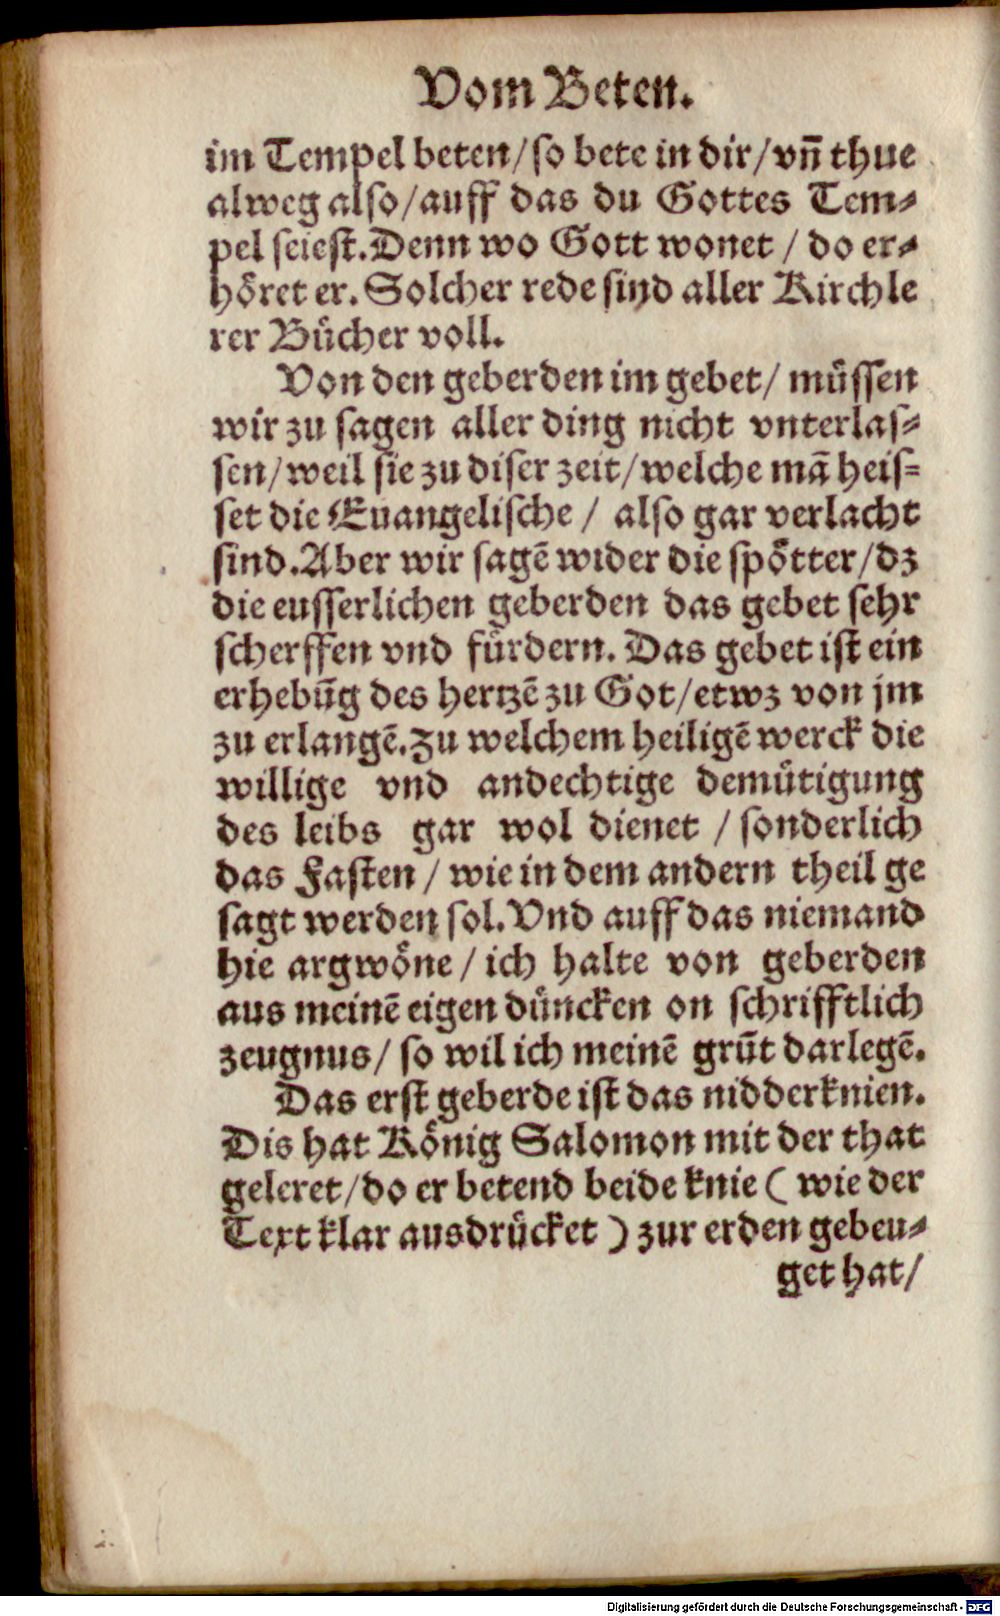 Vom Beten.
im Tempel beten/so bete in dir/vñ thue
alweg also/auff das du Gottes Tem⸗
pel seiest.Denn wo Gott wonet / do er⸗
höret er. Solcher rede sind aller Kirchle
rer Bücher voll.
Von den geberden im gebet/ müssen
wir zu sagen aller ding nicht vnterlas⸗
sen/weil sie zu diser zeit/welche mā heis⸗
set die Euangelische / also gar verlacht
sind.Aber wir sagē wider die spötter/dz
die eusserlichen geberden das gebet sehr
scherffen vnd fürdern. Das gebet ist ein
erhebūg des hertzē zu Got/etwz von jm
zu erlangē.Zu welchem heiligē werck die
willige vnd andechtige demütigung
des leibs gar wol dienet / sonderlich
das Fasten / wie in dem andern theil ge
sagt werden sol.Vnd auff das niemand
hie argwöne / ich halte von geberden
aus meinē eigen düncken on schrifftlich
zeugnus/ so wil ich meinē grūt darlegē.
Das erst geberde ist das nidderknien.
Dis hat König Salomon mit der that
geleret/do er betend beide knie ( wie der
Text klar ausdrücket ) zur erden gebeu⸗
get hat/
Digitalisierung gefördert durch die Deutsche Forschungsgemeinschaft - DFG